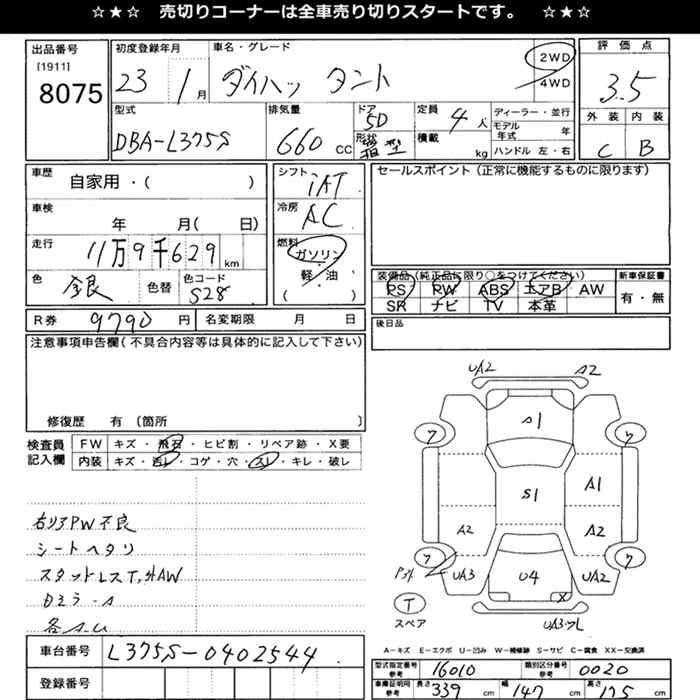 ☆★☆ 売切りコーナーは全車売り切りスタートです。 ☆★☆
出品番号 初度登録年月 車名・グレード 評価点
[1911]
8075
23 1月 ダイハツ タント 2WD 4WD 3.5
型式 排気量 ドア 定員 ディーラー・並行 外装 内装
DBA-L375S 660cc 5D 4人 モデル年式 年 C B
形状 箱型 積載 kg ハンドル 左・右
車歴 自家用・( ) シフト iAT セールスポイント(正常に機能するものに限ります)
車検 年 月( 日) 冷房 AC
走行 11万9千629km 燃料 ガソリン
色 銀 色替 色コード S28 軽・油 ( )
装備品(純正品に限り○をつけてください) 新車保証書
PS PW ABS エアB AW 有・無
SR ナビ TV 本革
R券 9790円 名変期限 月 日 後日品
注意事項申告欄(不具合内容等は具体的に記入して下さい)
修復歴 有 〔箇所
検査員記入欄 FW キズ・飛石・ヒビ割・リペア跡・X要
内装 キズ・汚レ・コゲ・穴・スレ・キレ・破レ
右リアPW不良
シートヘタリ
スタッドレスT,外AW
UA2 A2
ワ ワ
S1
S1 A1
A2 A2
ワ ワ
UA3 U4 UA2
X
T
スペア
A-キズ E-エクボ U-凹み W-補修跡 S-サビ C-腐食 XX-交換済
車台番号 L375S-0402544
登録番号
型式指定番号 参考 16010 類別区分番号 参考 0020
車庫証明用 参考 長さ 339cm 幅 147cm 高さ 175cm